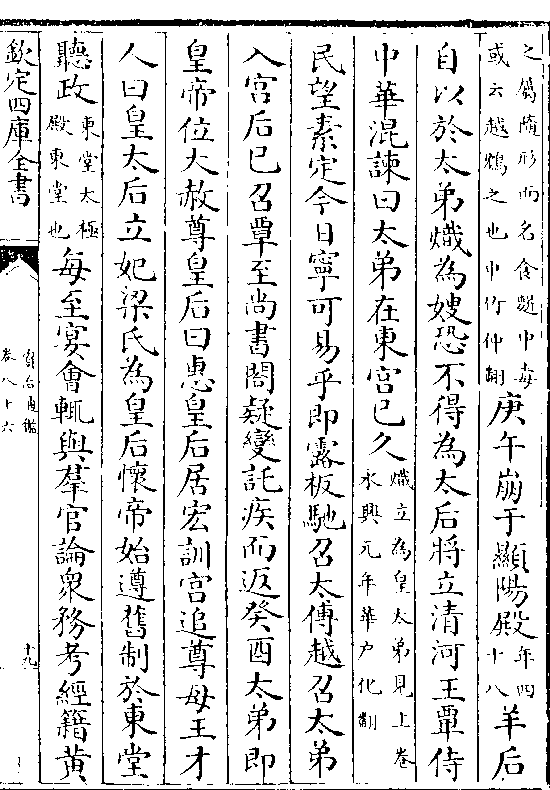 之屬隨形而名食䴺中毒
或云越鴆之也中竹仲翻
庚午崩于顯陽殿
年四
十八
羊后
自以於太弟熾為嫂恐不得為太后將立清河王覃侍
中華混諫曰太弟在東宮已久
熾立為皇太弟見上卷
永興元年華戶化翻
民望素定今日寧可易乎即露板馳召太傅越召太弟
入宮后已召覃至尚書閣疑變託疾而返癸酉太弟即
皇帝位大赦尊皇后曰惠皇后居宏訓宮追尊母王才
人曰皇太后立妃梁氏為皇后懷帝始遵舊制於東堂
聽政
東堂太極
殿東堂也
每至宴會輒與羣官論衆務考經籍黄
欽定四庫全書
資治通鑑
卷八十六
十九